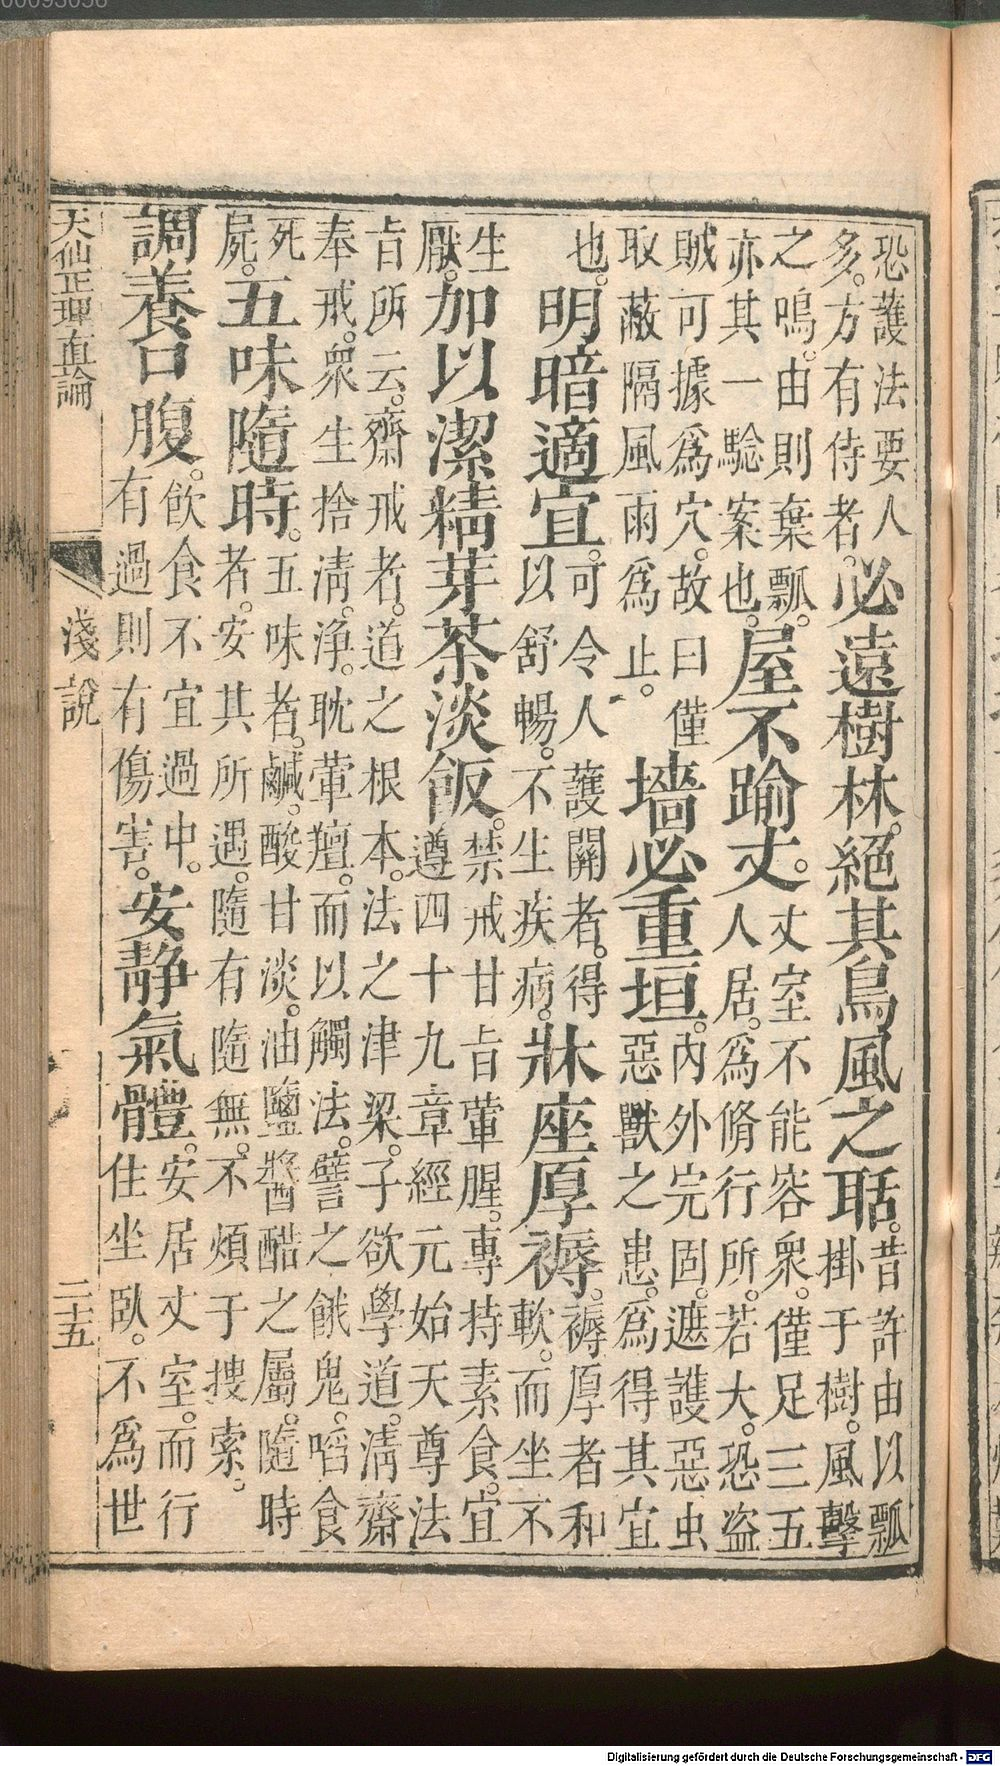 恐護法要人
多。方有侍者。
必遠樹林。絕其鳥風之聒。
昔許由以瓢
掛于樹。風擊
之鳴。由則棄瓢。
亦其一驗案也。
屋不踰丈。
丈室不能容衆。僅足三五
人居。爲脩行所。若大。恐盜
賊可據爲穴。故曰僅
取蔽隔風雨爲止。
墻必重垣。
內外完固。遮護惡虫
惡獸之患。爲得其宜
也。
明暗適宜。
可令人護關者。得
以舒暢。不生疾病。
牀座厚褥。
褥厚者和
軟。而坐不
生
厭。
加以潔精芽茶淡飯。
禁戒甘旨葷腥。專持素食。宜
遵四十九章經元始天尊法
旨所云。齋戒者。道之根本。法之津梁。子欲學道。清齋
奉戒。衆生捨清淨。耽葷羶。而以觸法。譬之餓鬼。啗食
死
屍。
五味隨時。
五味者。鹹。酸甘淡。油鹽醬醋之屬。隨時
者。安其所遇。隨有隨無。不煩于搜索。
調養口腹。
飲食不宜過中。
有過則有傷害。
安靜氣體。
安居丈室。而行
住坐臥。不爲世
天仙正理直論
淺說
二十五
00093056
Digitalisierung gefördert durch die Deutsche Forschungsgemeinschaft - DFG